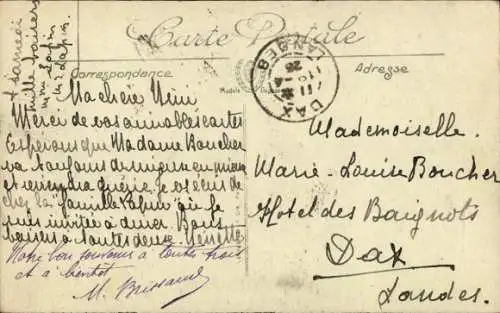 Carte Postale
Correspondance
Adresse
Samedi
mille baisers
mimi Lapin
Ma chère Mimi
Merci de vos aimables cartes
Espérons que Madame Boucher
va toujours de mieux en mieux
et reviendra guérie, je
chez la famille où je
suis invitée à diner. Bons
baisers à toutes deux.
Mon bon souvenir à toutes trois
et à bientôt
M. Brissaud
DAX
LANDES
Mademoiselle
Marie-Louise Boucher
Hotel des Baignots
Dax
Landes.